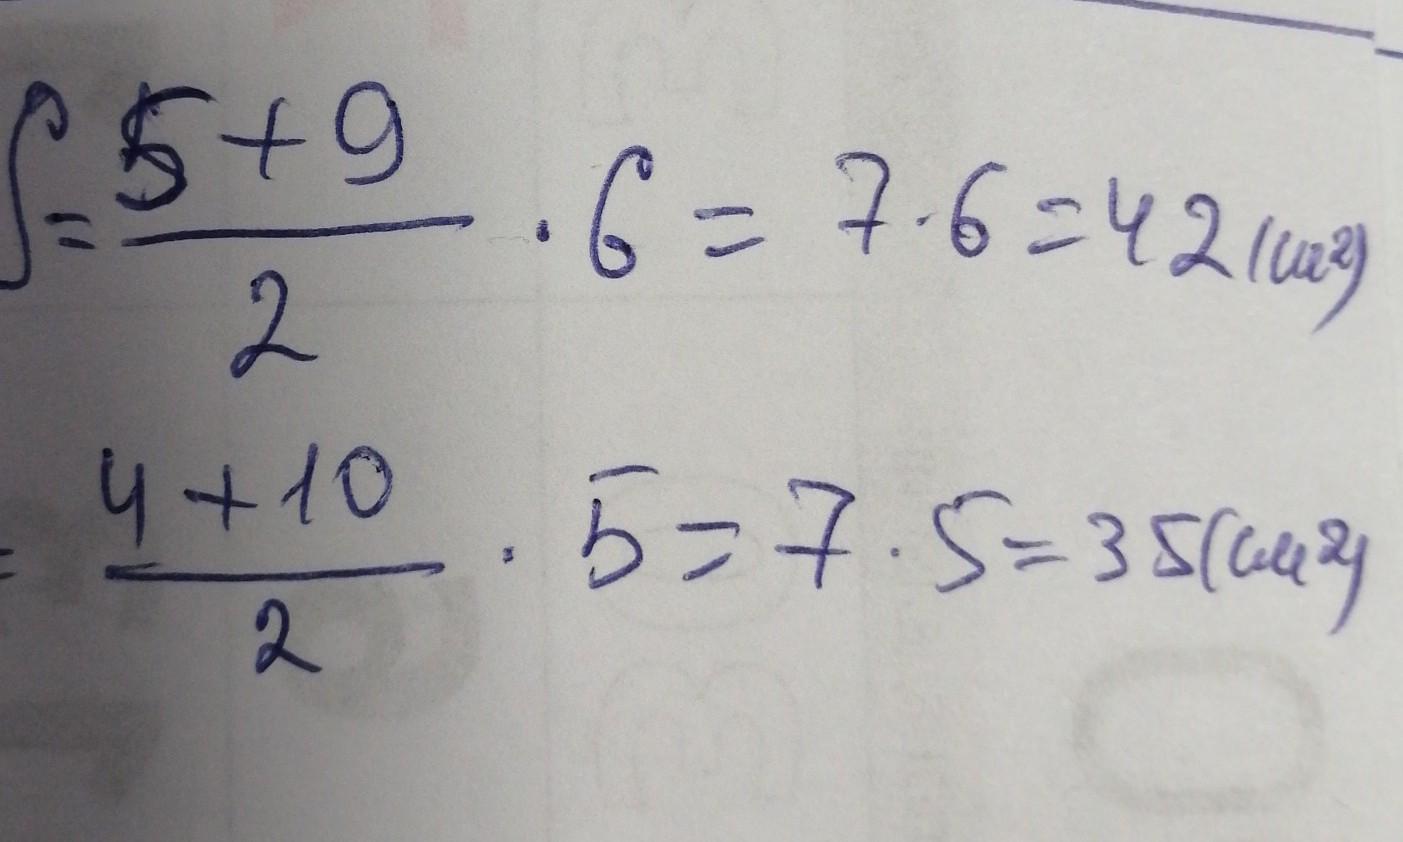 S = (5+9)/2 · 6 = 7 · 6 = 42 (см2)
= (4+10)/2 · 5 = 7 · 5 = 35 (см2)